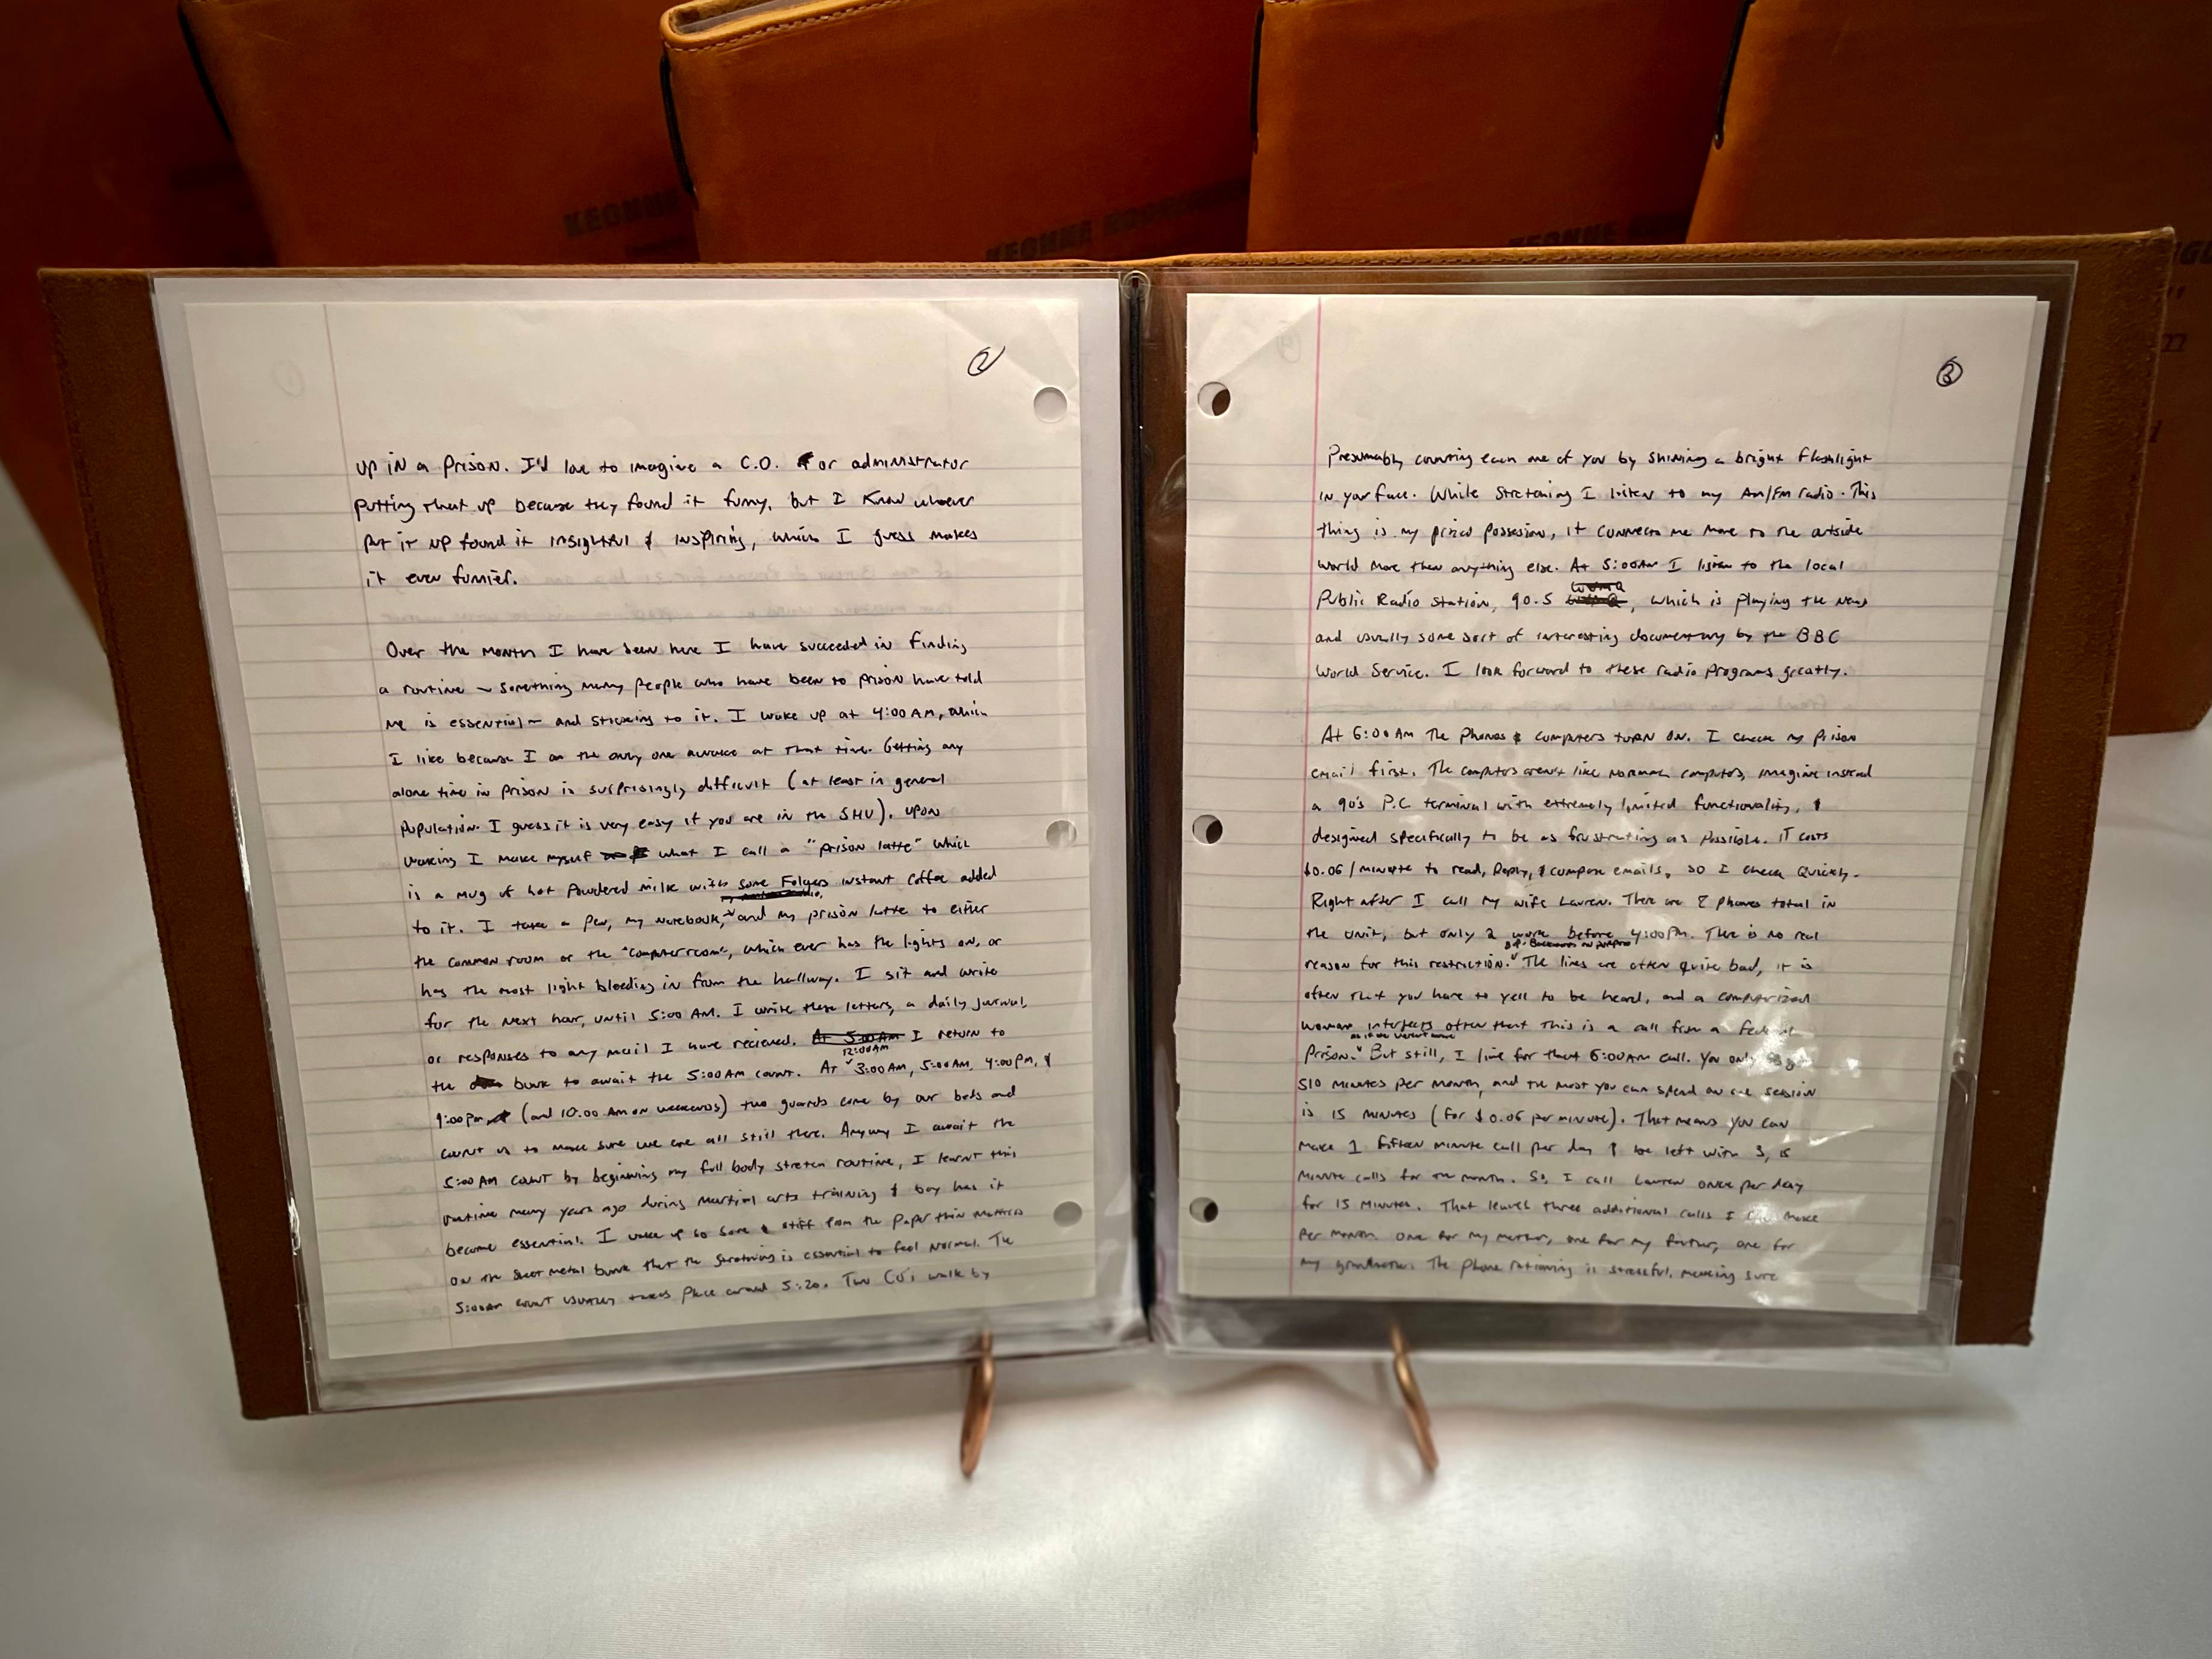 KEONNE
KEONNE
KEONNE
2
up in a prison. I'd love to imagine a C.O. or administrator
putting that up because they found it funny, but I know whoever
put it up found it insightful & inspiring, which I guess makes
it even funnier.
Over the month I have been here I have succeeded in finding
a routine – something many people who have been to prison have told
me is essential – and sticking to it. I wake up at 4:00 AM, which
I like because I am the only one awake at that time. Getting any
alone time in prison is surprisingly difficult (at least in general
population. I guess it is very easy if you are in the SHU). Upon
waking I make myself what I call a "prison latte" which
is a mug of hot powdered milk with some Folgers instant coffee added
to it. I take a pen, my notebook, and my prison latte to either
the common room or the "computer room", which ever has the lights on, or
has the most light bleeding in from the hallway. I sit and write
for the next hour, until 5:00 AM. I write these letters, a daily journal,
or responses to any mail I have recieved. At 5:00 AM I return to
12:00AM
the bunk to await the 5:00 AM count. At 3:00 AM, 5:00 AM, 4:00 pm, &
9:00 pm (and 10:00 AM on weekends) two guards come by our beds and
count us to make sure we are all still there. Anyway I await the
5:00 AM count by beginning my full body stretch routine, I learnt this
routine many years ago during martial arts training & boy has it
become essential. I wake up so sore & stiff from the paper thin mattress
on the sheet metal bunk that the stretching is essential to feel normal. The
5:00am count usually takes place around 5:20. Two CO's walk by
3
Presumably counting each one of you by shining a bright flashlight
in your face. While stretching I listen to my Am/FM radio. This
thing is my prized possession, it connects me more to the outside
world more then anything else. At 5:00AM I listen to the local
Public Radio station, 90.5, which is playing the news
and usually some sort of interesting documentary by the BBC
World Service. I look forward to these radio programs greatly.
At 6:00 AM The phones & computers turn on. I check my prison
email first. The computers aren't like normal computers, imagine instead
a 90's P.C terminal with extremely limited functionality, &
designed specifically to be as frustrating as possible. It costs
$0.06/minute to read, reply, & compose emails, so I check quickly.
Right after I call my wife Lauren. There are 8 phones total in
the unit, but only 2 work before 4:00 pm. There is no real
reason for this restriction. The lines are often quite bad, it is
often that you have to yell to be heard, and a computerized
woman interjects often that this is a call from a federal
prison. But still, I live for that 6:00 AM call. You only
510 minutes per month, and the most you can spend on one session
is 15 minutes (for $0.06 per minute). That means you can
make 1 fifteen minute call per day & be left with 3, 15
minute calls for the month. So, I call Lauren once per day
for 15 minutes. That leaves three additional calls I can make
per month. One for my mother, one for my father, one for
my grandmother. The phone rationing is stressful, making sure